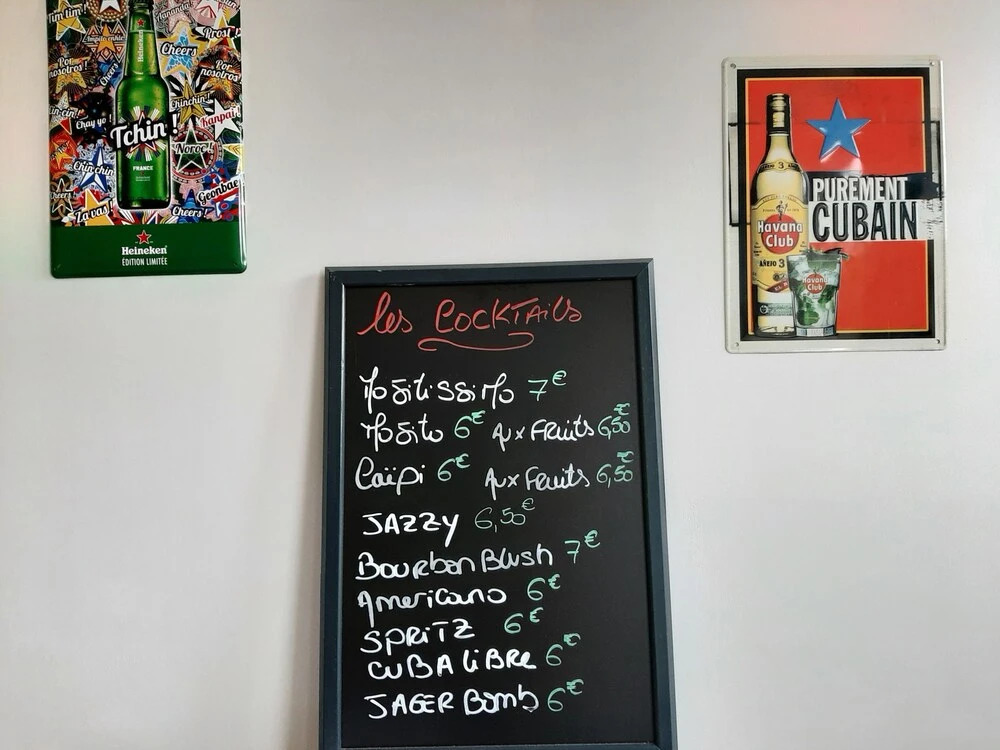 Tim tim!
Prost!
Cheers
Por nosotros!
Por nosotros!
Chinchin!
Okay yo!
Kanpai
Tchin!
Noroc!
Chin chin
FRANCE
Geonbae
Cheers!
La vas!
Cheers!
Heineken
Heineken
ÉDITION LIMITÉE
PUREMENT
CUBAIN
3
Havana
Club
AÑEJO 3
Havana
Club
les COCKTAiLS
MoJitissiMo 7€
MoJito 6€ Aux FRuits 6,50€
Caïpi 6€ Aux FRuits 6,50€
JAZZY 6,50€
Bourbon Blush 7€
Americano 6€
SPRiTZ 6€
CUBA LiBRe 6€
JAGER Bomb 6€